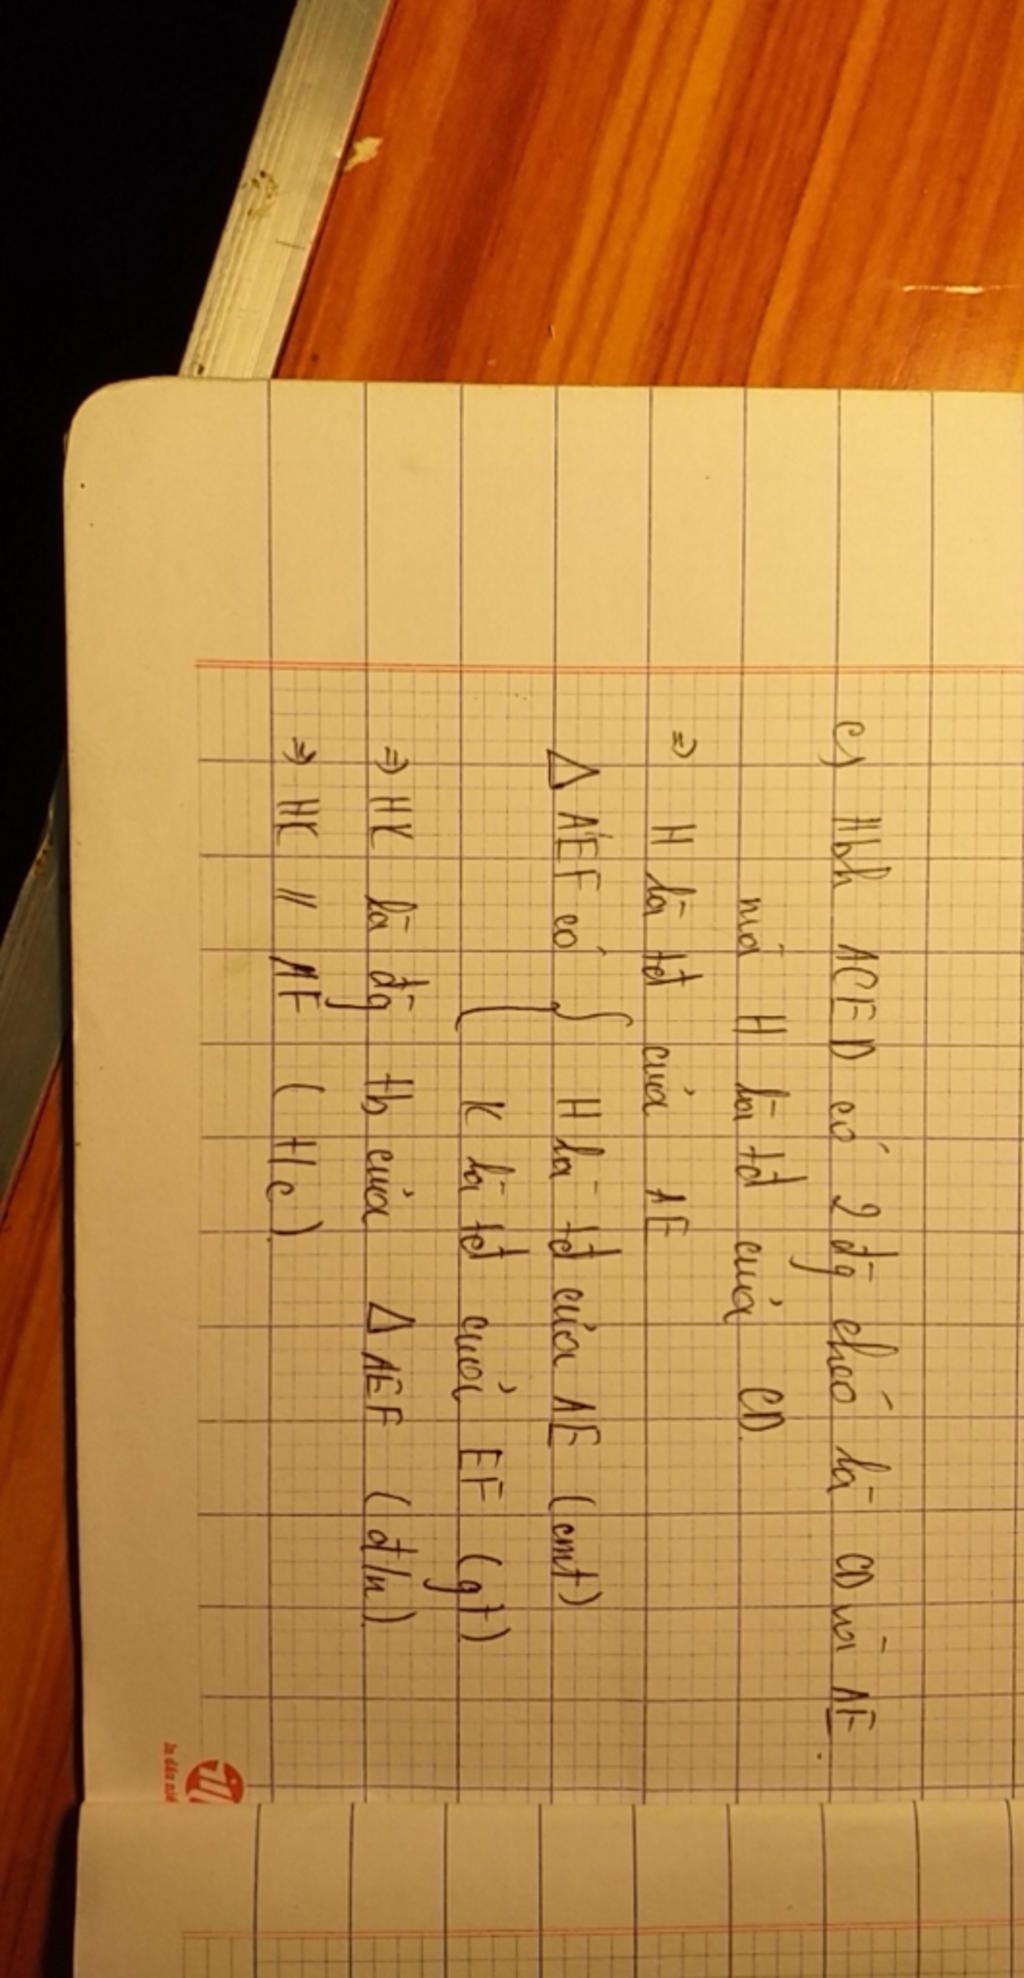 c) Hbh ACED có 2 đg chéo là CD và AE.
mà H là tđ của CD.
=> H là tđ của AE
Δ AEF có { H là tđ của AE (cmt)
K là tđ của EF (gt)
=> HK là đg tb của Δ AEF (đ/n)
=> HK // AF (t/c).